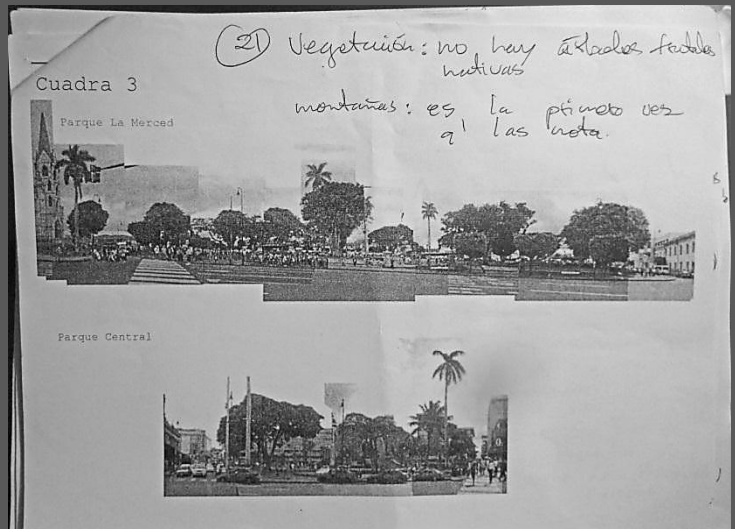 21 Vegetación: no hay árboles frutales
nativas
Cuadra 3
montañas: es la primera vez
q' las nota.
Parque La Merced
Parque Central